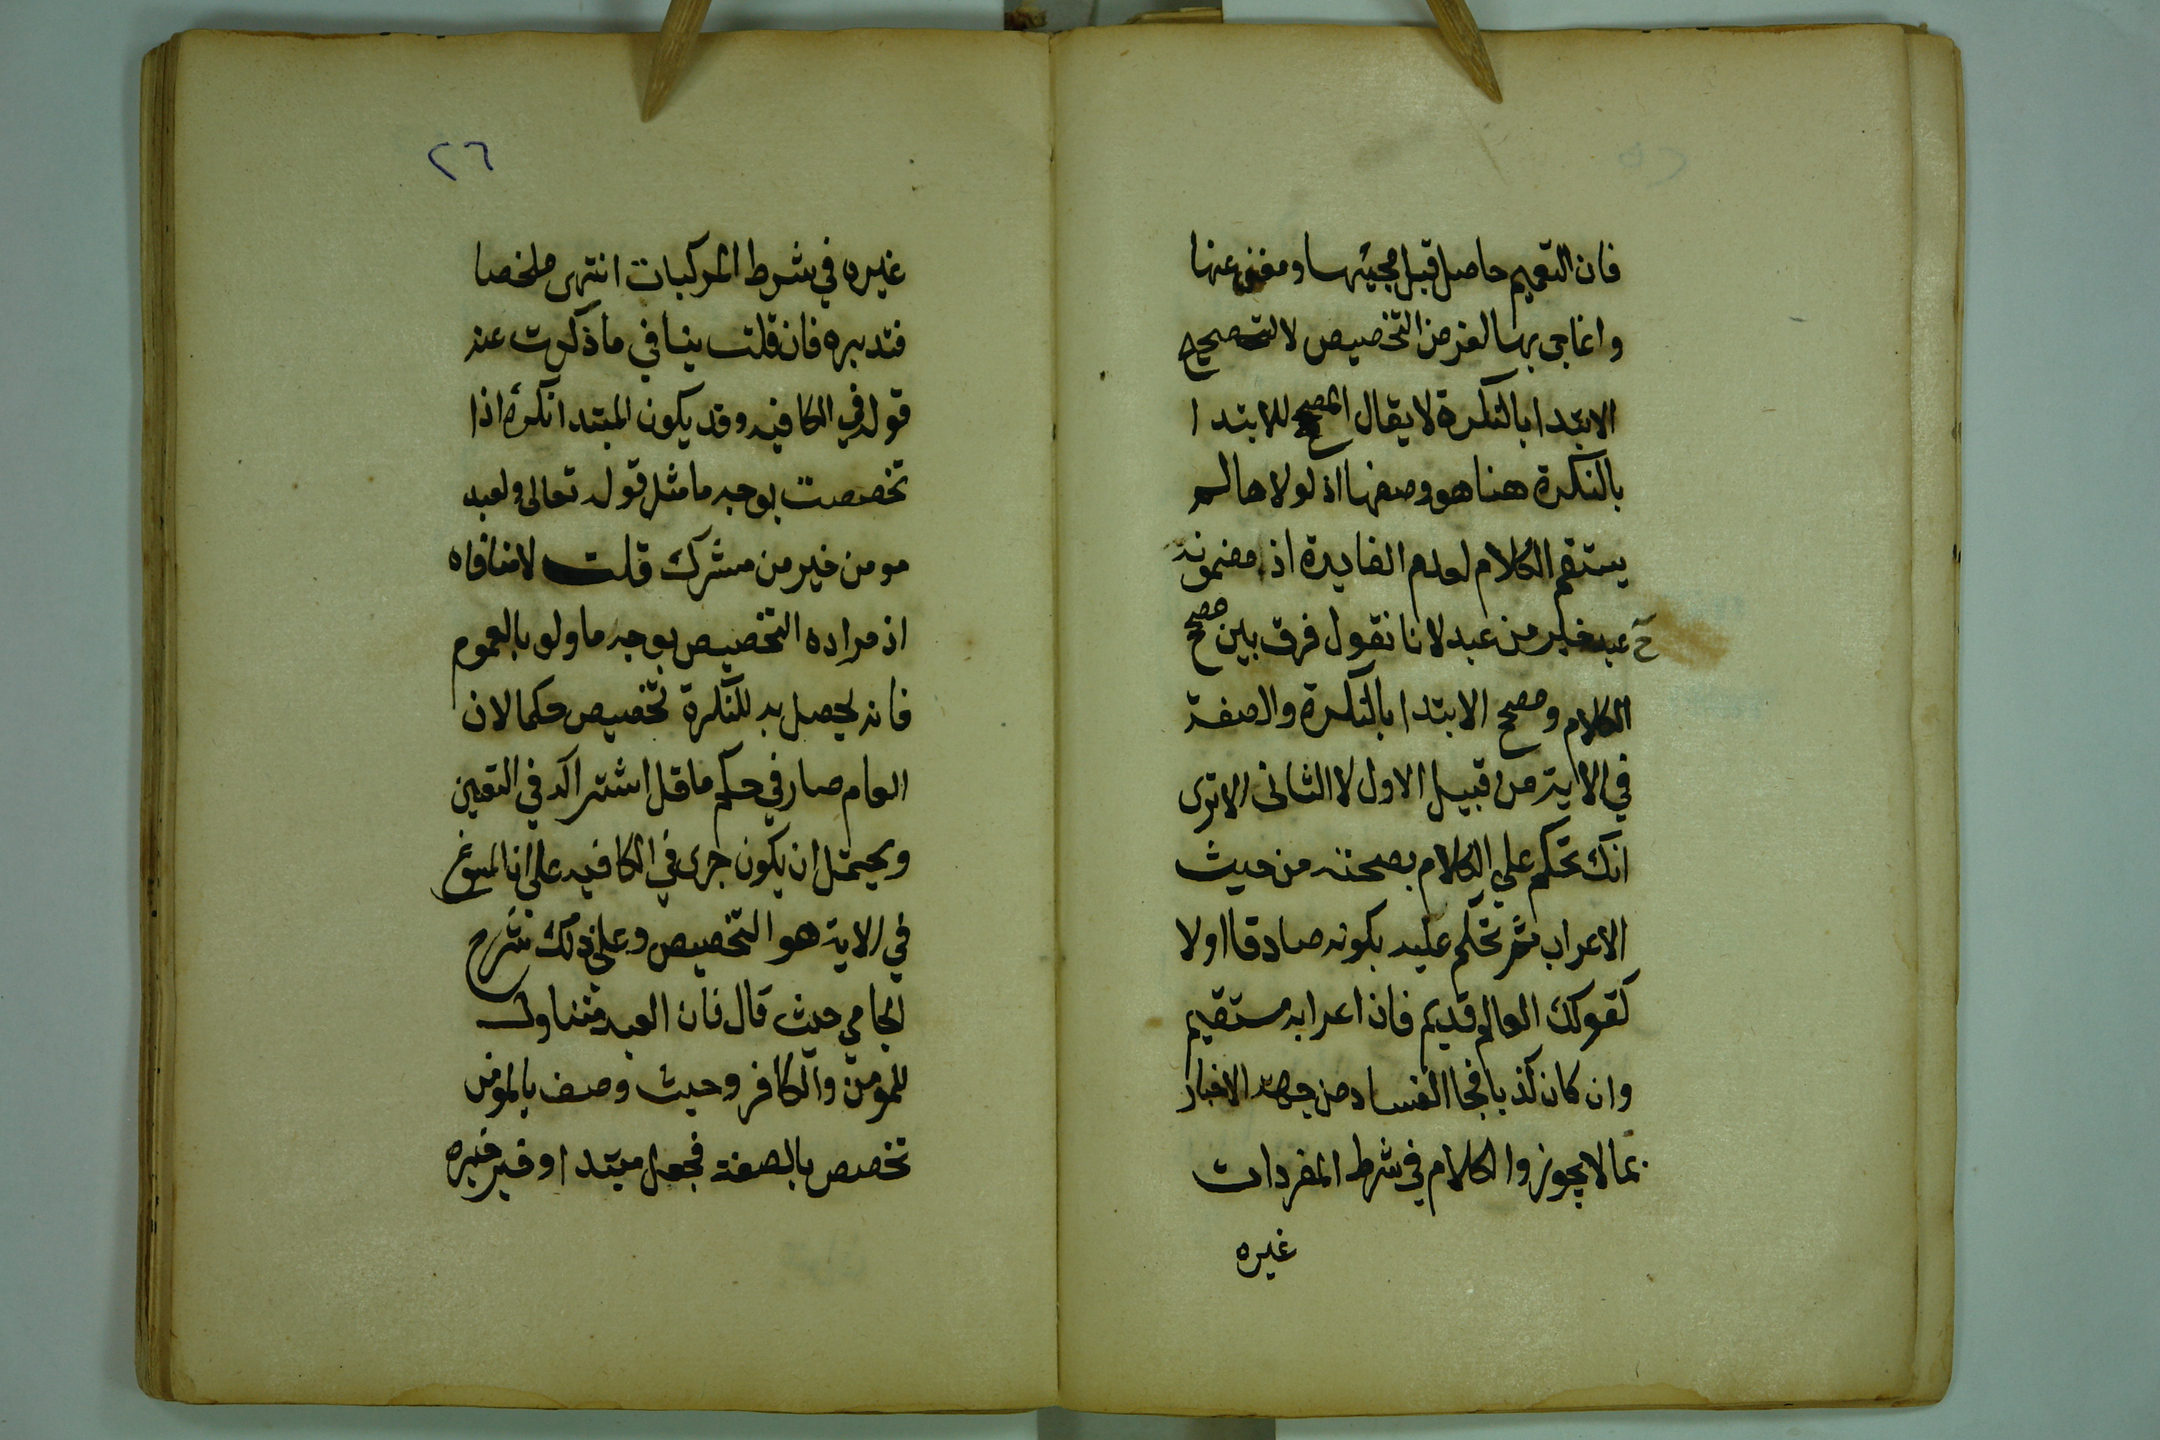 فان التعميم حاصل قبل مجيئها ومغن عنها
وانما جي بها لغرض التخصيص لا لتصحيح
الابتدا بالنكرة لا يقال المصحح للابتدا
بالنكرة هنا هو وصفها اذ لولاها لم
يستقم الكلام لعدم الفايدة اذ مضمونه
ح عبد خير من عبد لانا نقول فرق بين مصحح
الكلام ومصحح الابتدا بالنكرة والصفة
في الاية من قبيل الاول لا الثاني الاترى
انك تحكم علي الكلام بصحته من حيث
الاعراب ثم تحكم عليه بكونه صادقا اولا
كقولك العالم قديم فان اعرابه مستقيم
وان كان كذبا فجا الفساد من جهة الاخبار
بما لا يجوز والكلام في شرط المفردات
غيره
٢٦
غيره في شرط المركبات انتهى ملخصا
فتدبره فان قلت ينافي ما ذكرت عنه
قوله في الكافيه وقد يكون المبتدا نكرة اذا
تخصصت بوجه ما مثل قوله تعالى ولعبد
مومن خير من مشرك قلت لا منافاه
اذ مراده التخصيص بوجه ما ولو بالعموم
فانه يحصل به للنكرة تخصيص حكما لان
العام صار في حكم ما قل اشتراكه في التعين
ويحتمل ان يكون جرى في الكافيه على ان المسوغ
في الاية هو التخصيص وعلى ذلك شرح
الجامي حيث قال فان العبد متناول
للمومن والكافر وحيث وصف بالمومن
تخصص بالصفة فجعل مبتدا وخير خبره